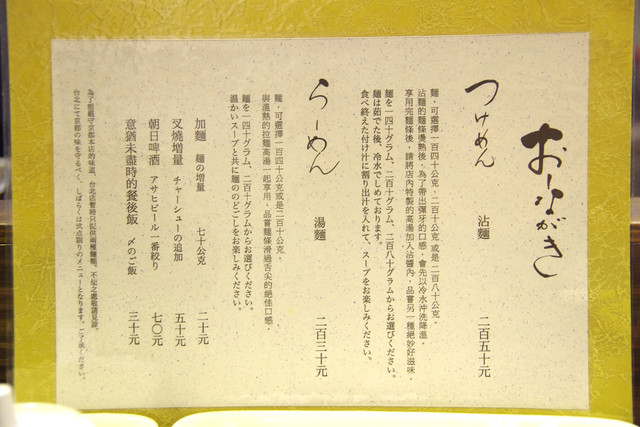 おしながき
つけめん 沾麵 二百五十元
麵，可選擇一百四十公克，二百十公克或是二百八十公克。
沾麵的麵條燙熟後，為了帶出彈牙的口感，會先以冷水沖洗降溫，
享用完麵條後，請將店內特製的高湯加入沾醬內，品嘗另一種絕妙好滋味。
麺を一四十グラム、二百十グラム、二百八十グラムからお選びください。
麺は茹でた後、冷水でしめております。
食べ終えた付け汁に割り出汁を入れて、スープをお楽しみください。
らーめん 湯麵 二百三十元
麵，可選擇一百四十公克或是二百十公克。
與溫熱的拉麵高湯一起享用，品嘗麵條滑過舌尖的絕佳口感，
麺を一四十グラム、二百十グラムからお選びください。
温かいスープと共に麺ののどごしをお楽しみください。
加麵 麺の増量 七十公克 二十元
叉燒增量 チャーシューの追加 五十元
朝日啤酒 アサヒビール一番絞り 七〇元
意猶未盡時的餐後飯 〆のご飯 三十元
為了能嚴守京都本店的味道，台北店暫時只提供兩種麵類，不佞之處敬請見諒。
台北にて京都の味を守るべく、しばらくは弐点限りのメニューとなります。ご了承ください。